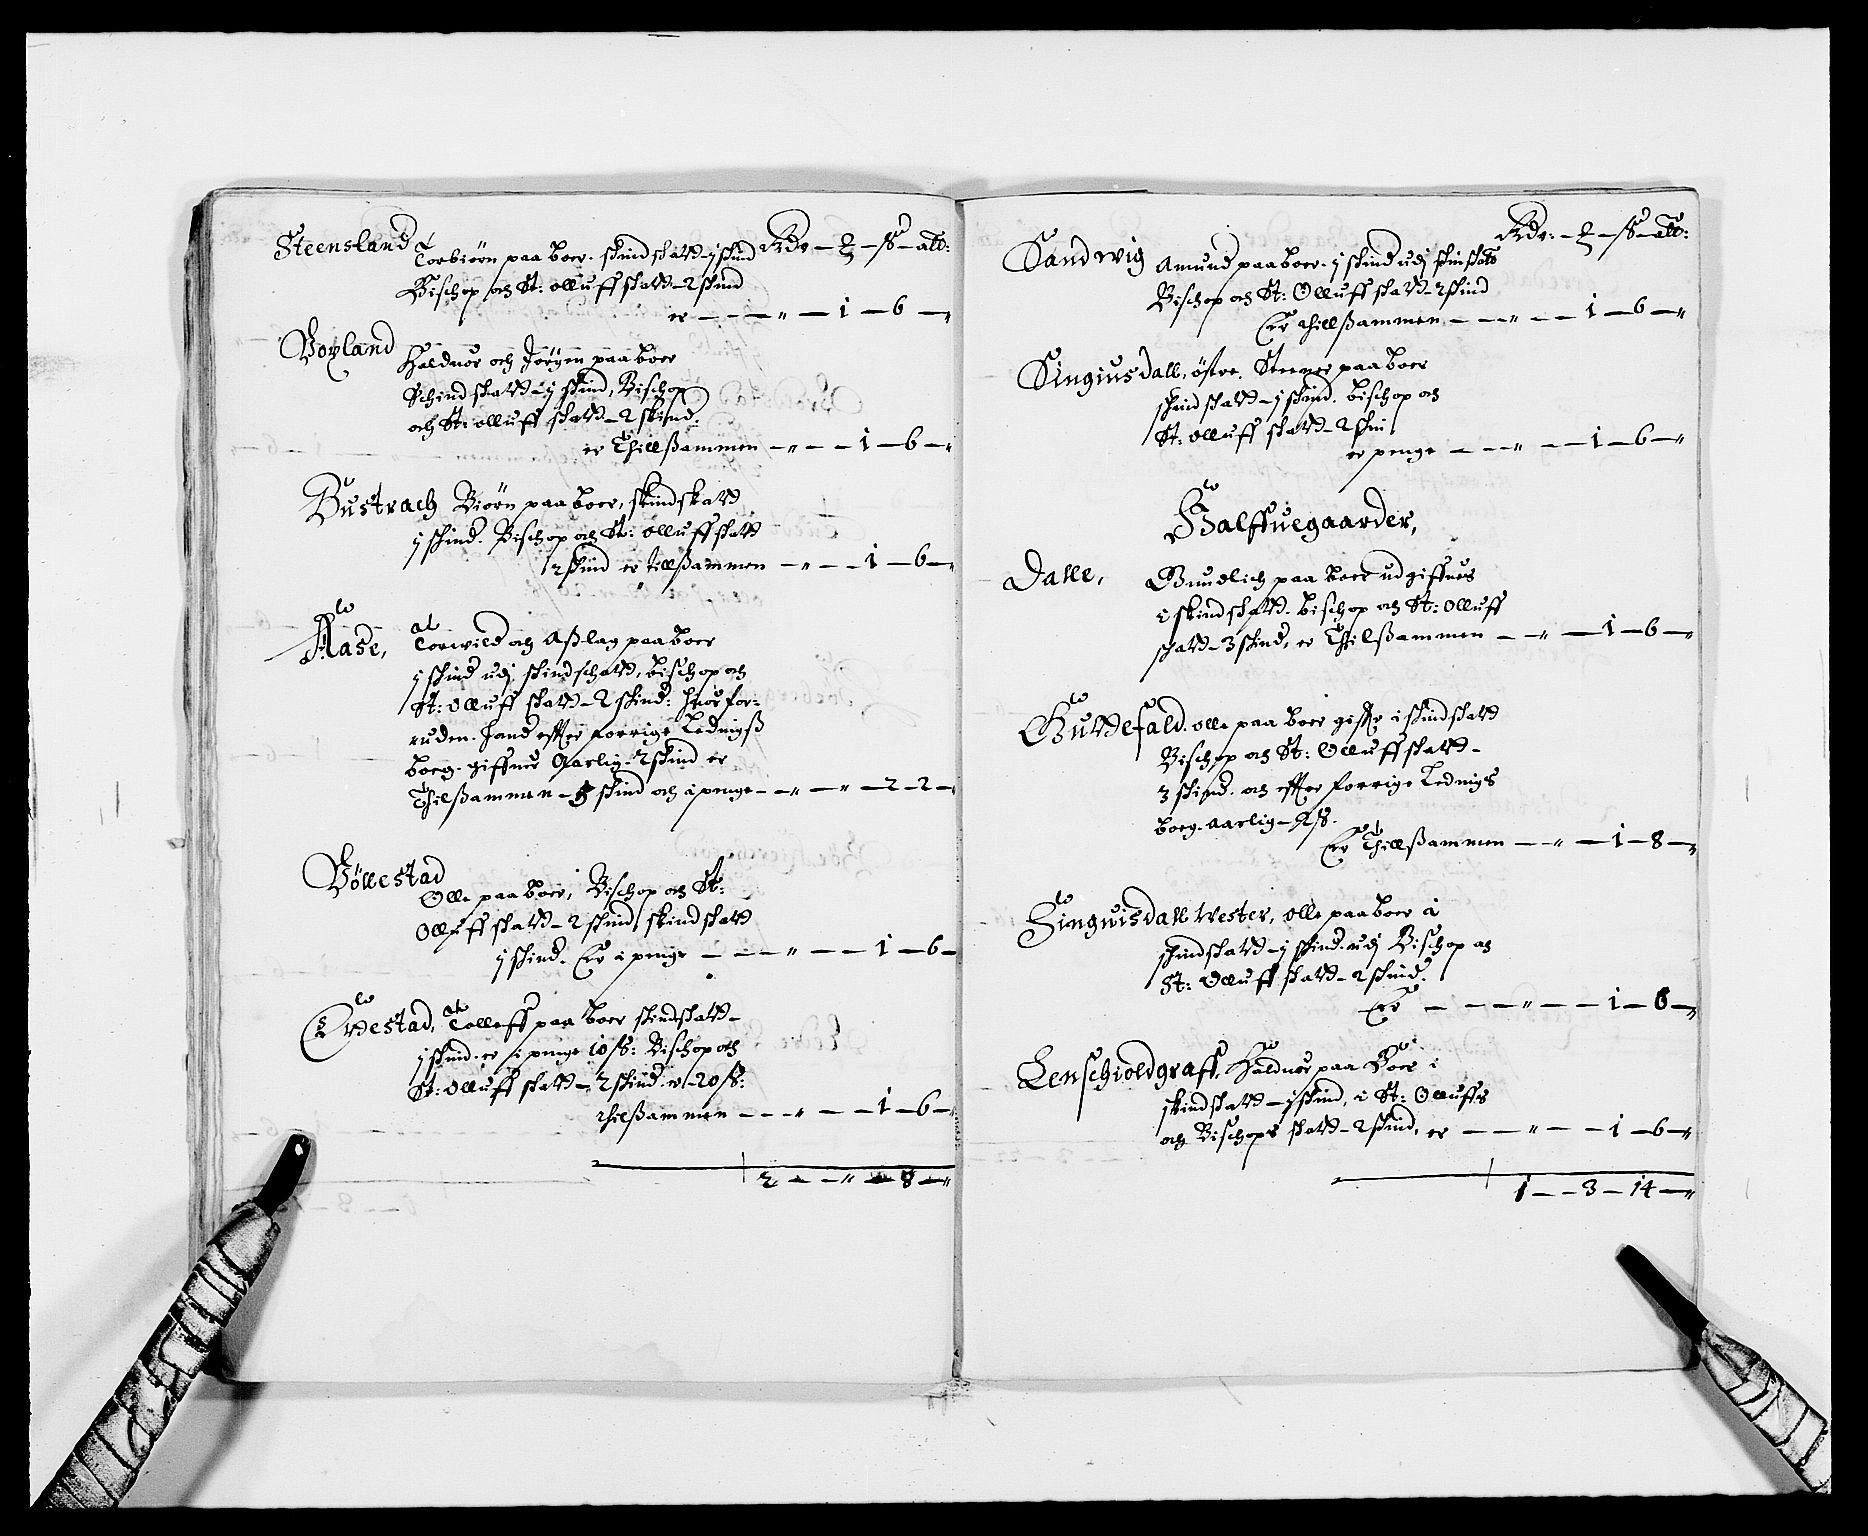 Rdr — ℥ — ß — alb:
Steensland Torbiørn paa boer. skindskatt — j skind
Bischop och St: olluffskatt — 2 skind
er — — — „ — 1 — 6 — „
Voyland Haldvor och Jørgen paa boer
Schindskatt — j skind, Bischop
och St: olluff skatt — 2 skind
er Thillßammen — „ — — 1 — 6 — „
Bustrach Biørn paa boer, skindskatt
j skind. Bischop och St: olluff skatt
2 skind er tillßammen — „ — — 1 — 6 — „
Aase, Torvild och Aßlag paa boer
j skind udj skindschatt, bischop och
St: olluff skatt — 2 skind: huor for-
uden. hand effter forrige Lednigß
boeg. giffuer Aarlig — 2 skind er
Thilßammen — 5 skind och i penge — „ — „ — 2 — 2 — „
Vøllestad Olle paa boer, Bischop och St:
Olluff skatt — 2 skind, skind skatt
j skind. Er i penge — — — „ — — 1 — 6 —
Tvedestad, Tolleff paa boer skindskatt —
j skind. er i penge 10 ß: Bischop och
St: olluff skatt — 2 skind. er — 20 ß:
thilßammen — — „ — — 1 — 6 — „
2 — — „ — 8 — „
Rdr: — ℥ — ß — alb:
Sandwig Amund paa boer. j skind udj skinskatt
Bischop och St: Olluff skatt — 2 skind
Er thillßammen — — „ — — 1 — 6 — „
Singiusdall, östre. Steener paa boer
skind skatt — j skind. bischop och
St: olluff skatt — 2 skin
er penge — — „ — — 1 — 6 — „
Halffuegaarder,
Dalle, Gundlich paa boer udgiffues
i skindschatt. bischop och St: olluff
skatt — 3 skind, er Thilßammen — — „ — 1 — 6 — „
Guttefald. olle paa boer giffr i skindskatt
Bischop och St: Olluff skatt —
3 skind. och effter forrige Lednigs
boeg. aarlig — 2 ß.
Er Thillßammen — „ — — 1 — 8 — „
Singuisdall wester, olle paa boer i
skindskatt — j skind. udj Bischop och
St: Olluff skatt — 2 skind.
Er — — — „ — — 1 — 6 — „
Lenschioldgraff, Haldvor paa Boer i
skindskatt — j skind, i St: Olluffs
och Bischops skatt — 2 skind, er — — „ — — 1 — 6 — „
1 — — 3 — 14 — „